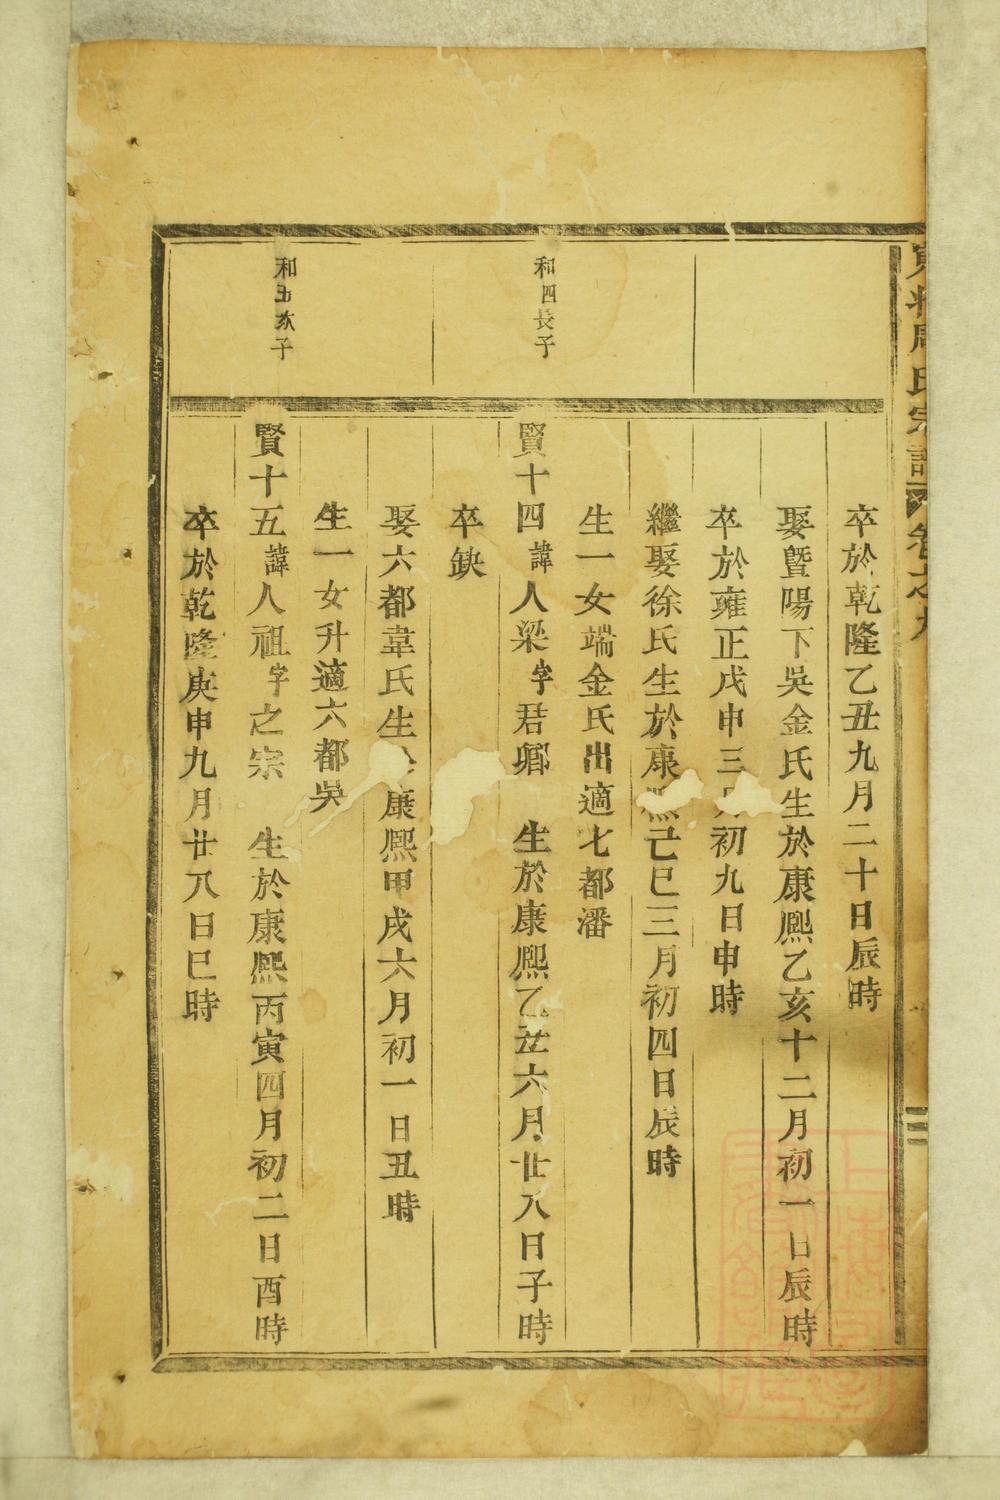 周氏宗譜 卷之九
卒於乾隆乙丑九月二十日辰時
娶曁陽下吳金氏生於康熙乙亥十二月初一日辰時
卒於雍正戊申三月初九日申時
繼娶徐氏生於康熙己巳三月初四日辰時
生一女端金氏出適七都潘
和四長子
賢十四諱人梁字君卿 生於康熙乙丑六月廿八日子時
卒缺
娶六都韋氏生於康熙甲戌六月初一日丑時
生一女升適六都吳
和五次子
賢十五諱人祖字之宗 生於康熙丙寅四月初二日酉時
卒於乾隆庚申九月廿八日巳時